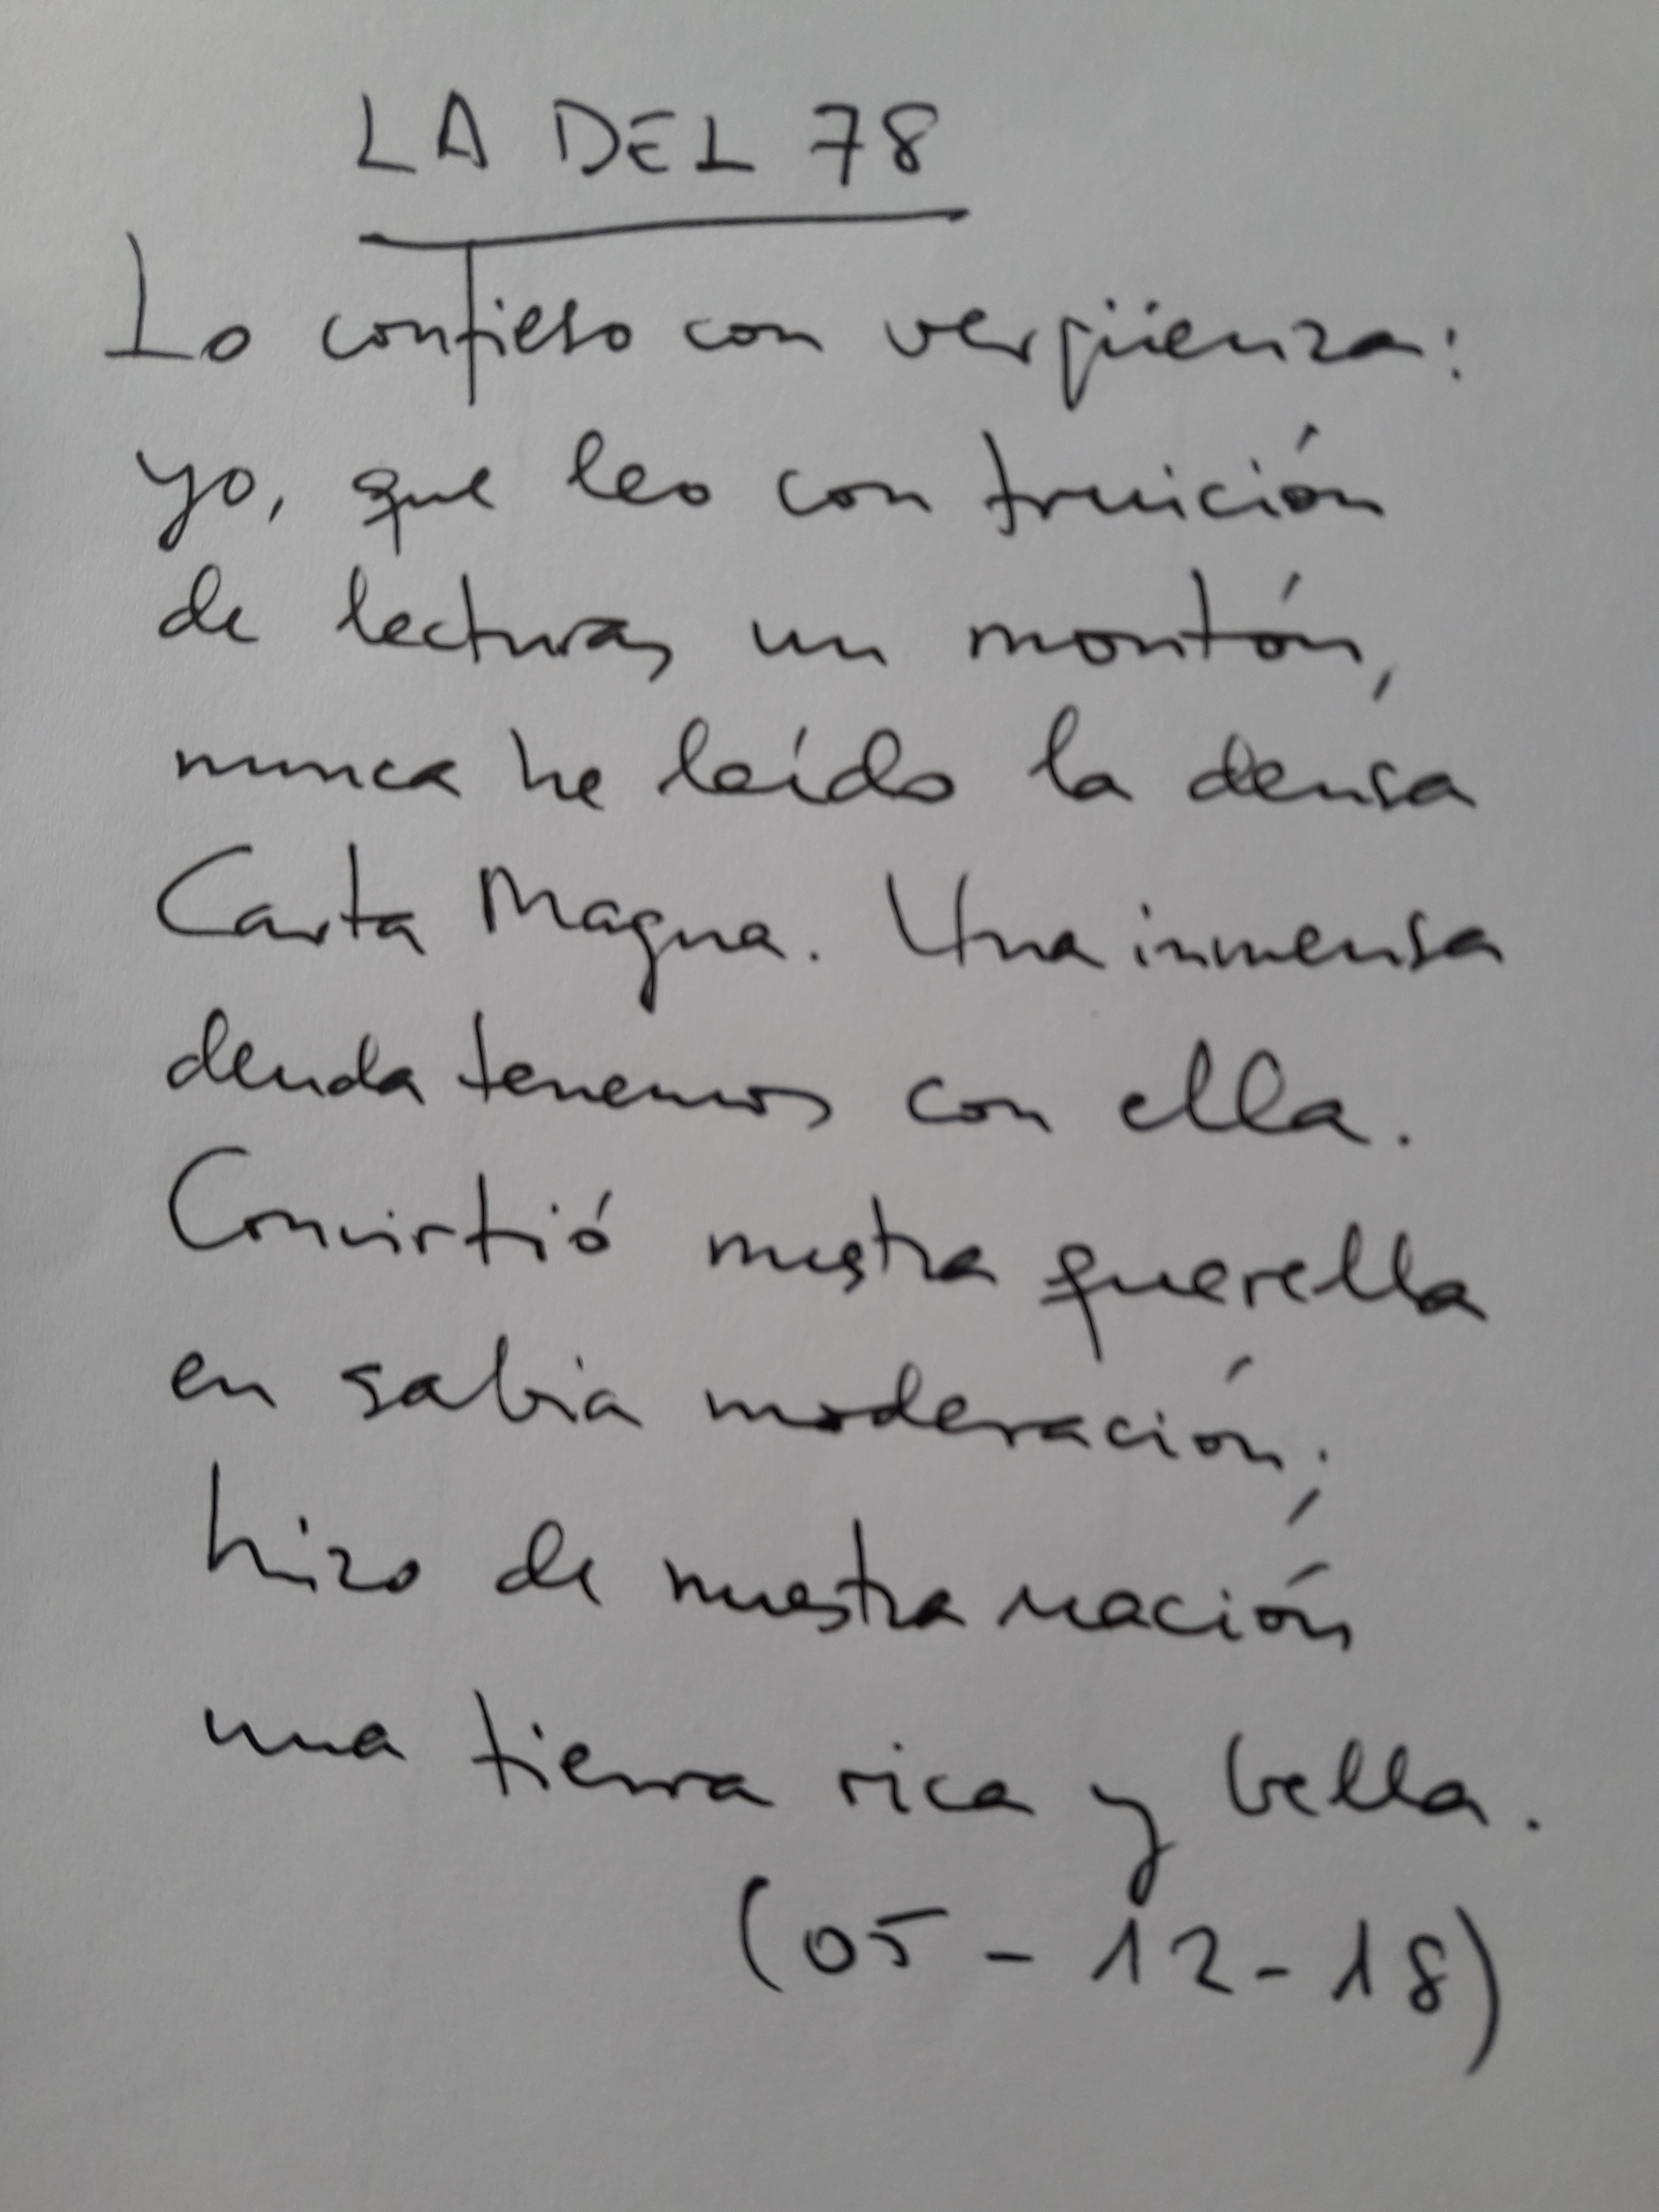 LA DEL 78
Lo confieso con vergüenza:
yo, que leo con fruición
de lecturas un montón,
nunca he leído la densa
Carta Magna. Una inmensa
deuda tenemos con ella.
Convirtió nuestra querella
en sabia moderación;
hizo de nuestra nación
una tierra rica y bella.
(05-12-18)